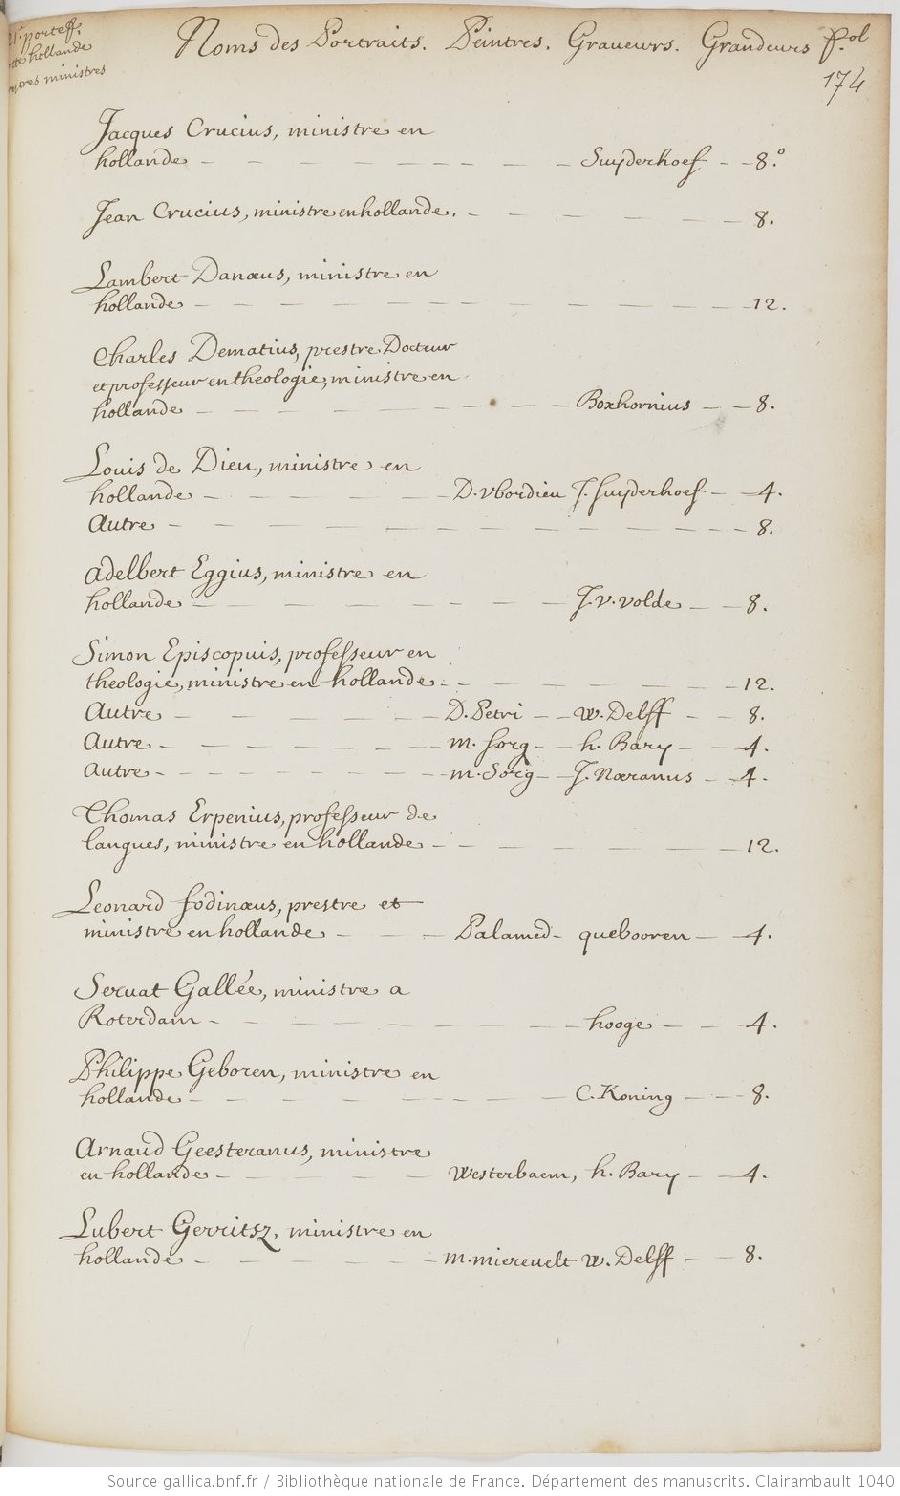 porteff.
hollande
ministres
Noms des Portraits. Peintres. Graveurs. Grandeurs fol
174
Jacques Crucius, ministre en
hollande - - - - - - - - - Suyderhoef - - 8.º
Jean Crucius, ministre en hollande. - - - - - - 8.
Lambert Danæus, ministre en
hollande - - - - - - - - - - - 12.
Charles Dematius, prestre Docteur
et professeur en theologie, ministre en
hollande - - - - - - - Boxhornius - - 8.
Louis de Dieu, ministre en
hollande - - - - - D. vbordieu J. Suyderhoef - - 4.
Autre - - - - - - - - - - - 8.
Adelbert Eggius, ministre en
hollande - - - - - - - - J. v. volde - - 8.
Simon Episcopuis, professeur en
theologie, ministre en hollande - - - - - - - 12.
Autre - - - - - D. Petri - - w. Delff - - 8.
Autre. - - - - - - m. Sorg - h. Bary - - 4.
Autre - - - - - - m. Sorg - J. Næranus - - 4.
Thomas Erpenius, professeur de
langues, ministre en hollande - - - - - - - 12.
Leonard fodinæus, prestre et
ministre en hollande - - - Palamed - quebooren - - 4.
Servat Gallée, ministre a
Roterdam - - - - - - - - hooge - - - 4.
Philippe Geboren, ministre en
hollande - - - - - - - - C. Koning - - - 8.
Arnaud Geesteranus, ministre
en hollande - - - - - Westerbaem, h. Bary - - 4.
Lubert Gerritsz, ministre en
hollande - - - - - m. mierevelt w. Delff - - 8.
Source gallica.bnf.fr / Bibliothèque nationale de France. Département des manuscrits. Clairambault 1040